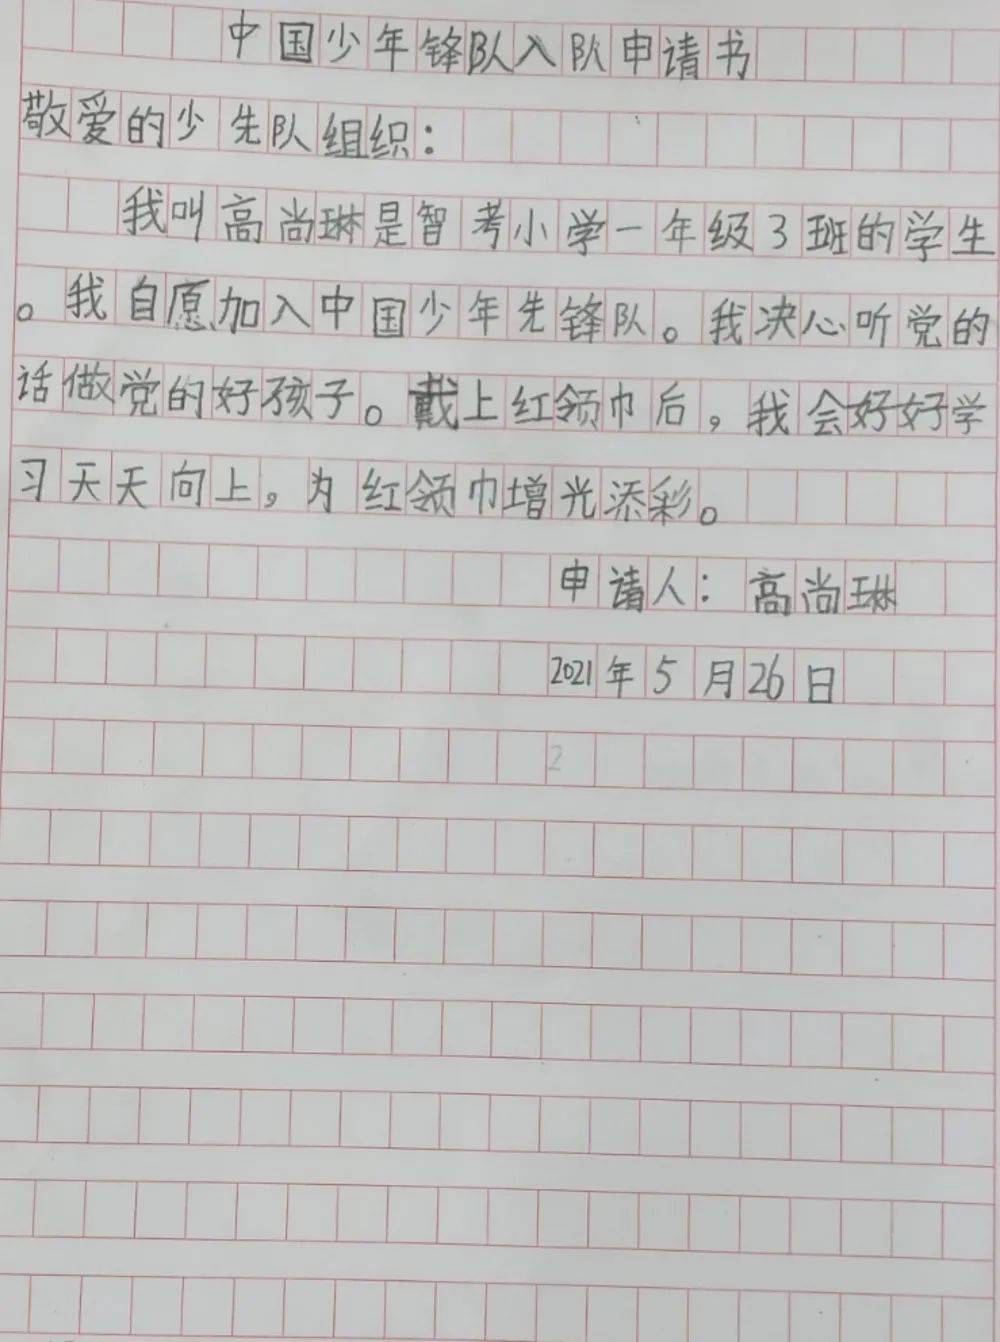 中国少年锋队入队申请书
敬爱的少先队组织：
我叫高尚琳是智考小学一年级3班的学生
。我自愿加入中国少年先锋队。我决心听党的
话做党的好孩子。戴上红领巾后，我会好好学
习天天向上，为红领巾增光添彩。
申请人：高尚琳
2021年5月26日
2